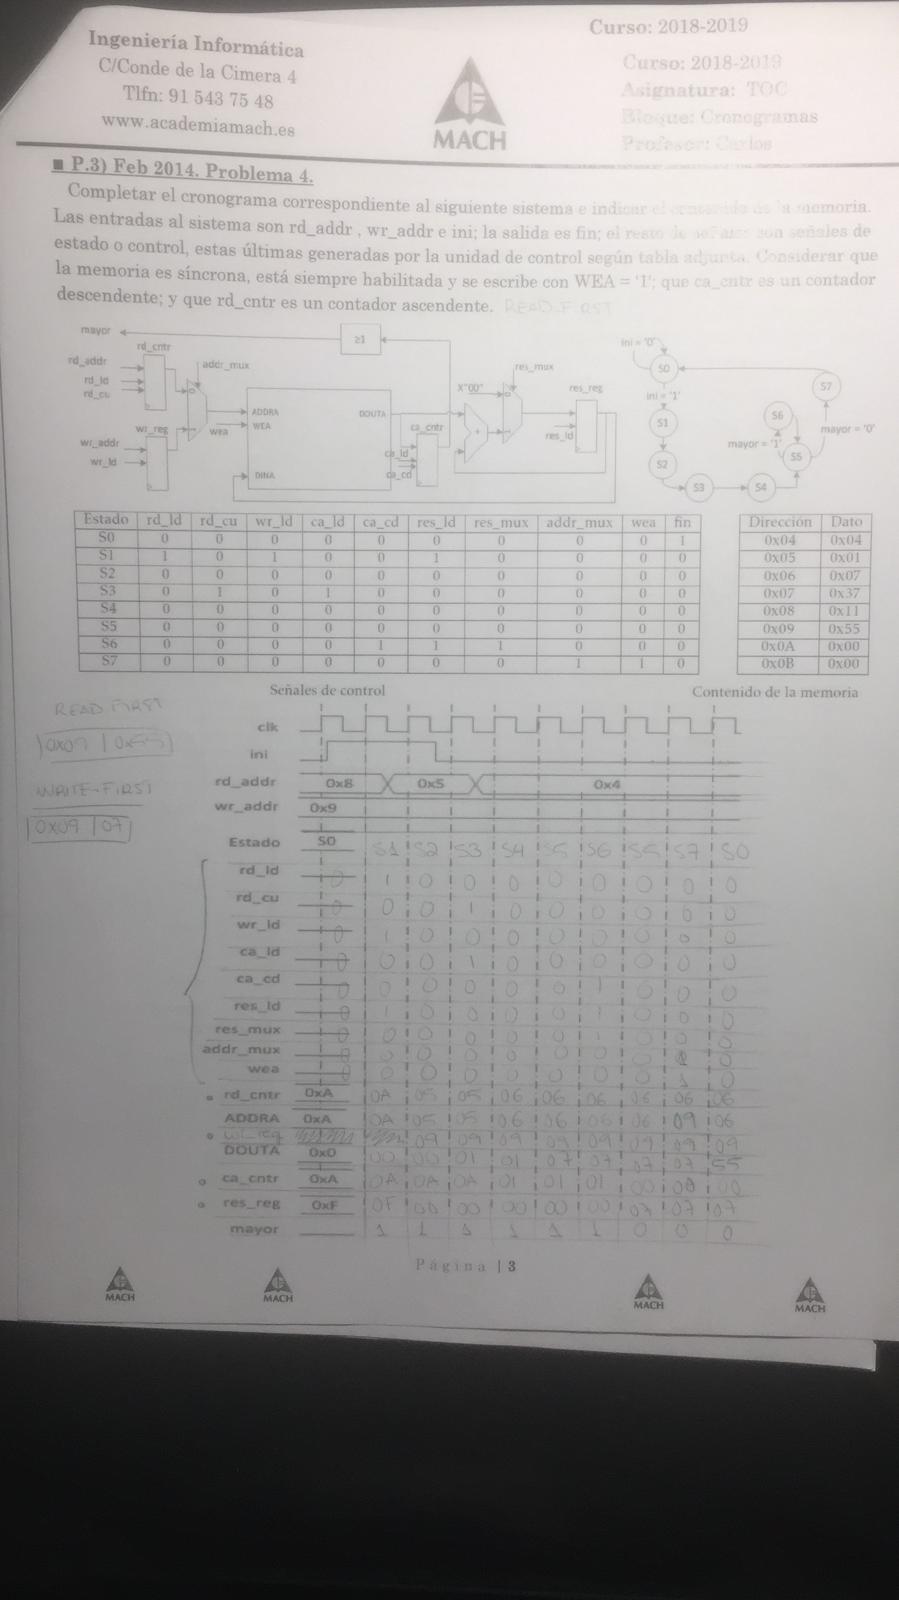 Ingeniería Informática
C/Conde de la Cimera 4
Tlfn: 91 543 75 48
www.academiamach.es
MACH
Curso: 2018-2019
Curso: 2018-2019
Asignatura: TOC
Bloque: Cronogramas
Profesor: Carlos
■ P.3) Feb 2014. Problema 4.
Completar el cronograma correspondiente al siguiente sistema e indicar el contenido de la memoria.
Las entradas al sistema son rd_addr , wr_addr e ini; la salida es fin; el resto de señales son señales de
estado o control, estas últimas generadas por la unidad de control según tabla adjunta. Considerar que
la memoria es síncrona, está siempre habilitada y se escribe con WEA = '1'; que ca_cntr es un contador
descendente; y que rd_cntr es un contador ascendente. READ-FIRST
mayor ≥1
rd_cntr
rd_addr
rd_ld
rd_cu
addr_mux
wr_reg
wr_addr
wr_ld
wea
ADDRA
WEA
DINA
DOUTA
ca_cntr
ca_ld
ca_cd
X"00"
+
res_mux
res_reg
res_ld
ini = '0'
S0
ini = '1'
S1
S2
S3
S4
S5
S6
S7
mayor = '1'
mayor = '0'
Estado rd_ld rd_cu wr_ld ca_ld ca_cd res_ld res_mux addr_mux wea fin
S0 0 0 0 0 0 0 0 0 0 1
S1 1 0 1 0 0 1 0 0 0 0
S2 0 0 0 0 0 0 0 0 0 0
S3 0 1 0 1 0 0 0 0 0 0
S4 0 0 0 0 0 0 0 0 0 0
S5 0 0 0 0 0 0 0 0 0 0
S6 0 0 0 0 1 1 1 0 0 0
S7 0 0 0 0 0 0 0 1 1 0
Señales de control
Dirección Dato
0x04 0x04
0x05 0x01
0x06 0x07
0x07 0x37
0x08 0x11
0x09 0x55
0x0A 0x00
0x0B 0x00
Contenido de la memoria
READ FIRST
0x09 | 0x55
WRITE-FIRST
0x09 | 07
clk
ini
rd_addr 0x8 0x5 0x4
wr_addr 0x9
Estado S0 S1 S2 S3 S4 S5 S6 S5 S7 S0
rd_ld 0 1 0 0 0 0 0 0 0 0
rd_cu 0 0 0 1 0 0 0 0 0 0
wr_ld 0 1 0 0 0 0 0 0 0 0
ca_ld 0 0 0 1 0 0 0 0 0 0
ca_cd 0 0 0 0 0 0 1 0 0 0
res_ld 0 1 0 0 0 0 1 0 0 0
res_mux 0 0 0 0 0 0 1 0 0 0
addr_mux 0 0 0 0 0 0 0 0 1 0
wea 0 0 0 0 0 0 0 0 1 0
rd_cntr 0xA 0A 05 05 06 06 06 06 06 06
ADDRA 0xA 0A 05 05 06 06 06 06 09 06
wr_reg 09 09 09 09 09 09 09 09
DOUTA 0x0 00 00 01 01 07 07 07 07 55
ca_cntr 0xA 0A 0A 0A 01 01 01 00 00 00
res_reg 0xF 0F 00 00 00 00 00 07 07 07
mayor 1 1 1 1 1 1 0 0 0
Página | 3
MACH
MACH
MACH
MACH